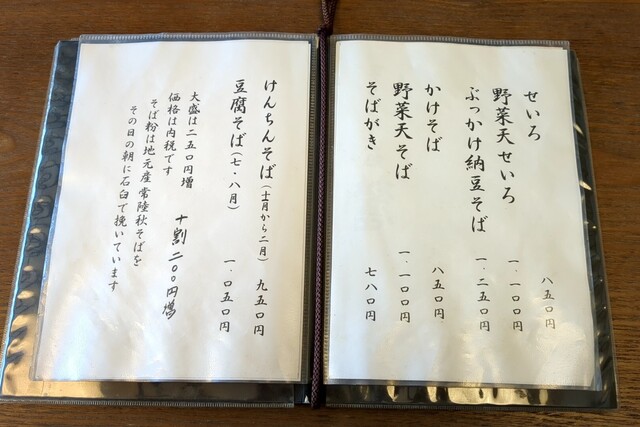 せいろ 八五〇円
野菜天せいろ 一・一〇〇円
ぶっかけ納豆そば 一・二五〇円
かけそば 八五〇円
野菜天そば 一・一〇〇円
そばがき 七八〇円
けんちんそば(十一月から二月) 九五〇円
豆腐そば(七・八月) 一・〇五〇円
大盛は二五〇円増
十割 二〇〇円増
価格は内税です
そば粉は地元産常陸秋そばを
その日の朝に石臼で挽いています